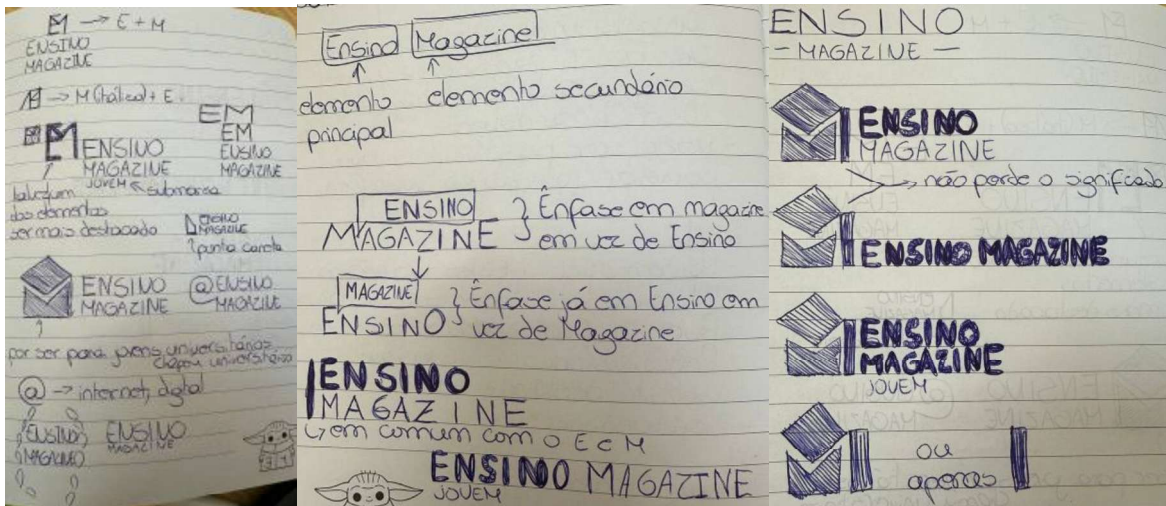 EM → E + M
ENSINO
MAGAZINE
M → M (itálico) + E
EM
EM
ENSINO
MAGAZINE
EM ENSINO
MAGAZINE
JOVEM ← submarca
talvez um
dos elementos
ser mais destacado
ENSINO
MAGAZINE
ponta caneta
ENSINO
MAGAZINE
@ ENSINO
MAGAZINE
por ser para jovens universitários
chapéu universitário
@ → internet, digital
ENSINO
MAGAZINE
ENSINO
MAGAZINE
Ensino Magazine
elemento
principal
elemento secundário
ENSINO
MAGAZINE
Ênfase em magazine
em vez de Ensino
MAGAZINE
ENSINO
Ênfase já em Ensino em
vez de Magazine
ENSINO
MAGAZINE
em comum com o E e M
ENSINO MAGAZINE
JOVEM
ENSINO
— MAGAZINE —
ENSINO
MAGAZINE
→ não perde o significado
ENSINO MAGAZINE
ENSINO
MAGAZINE
JOVEM
ou
apenas